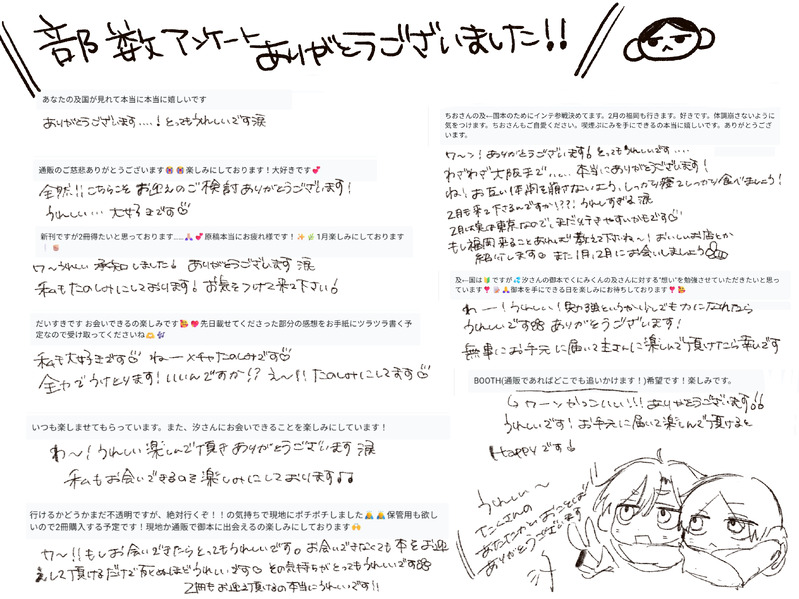 部数アンケートありがとうございました!!
あなたの及国が見れて本当に本当に嬉しいです
ありがとうございます....! とってもうれしいです涙
通販のご慈悲ありがとうございます😭😭楽しみにしております!大好きです💕
全然!!こちらこそお迎えのご検討ありがとうございます!
うれしい… 大好きです
新刊ですが2冊得たいと思っております.....🙏💕原稿本当にお疲れ様です!✨🌿1月楽しみにしております
!👏
ワ〜うれしい 承知しました! ありがとうございます 涙
私もたのしみにしております! お気をつけて来て下さい!
だいすきです お会いできるの楽しみです💖先日載せてくださった部分の感想をお手紙にツラツラ書く予
定なので受け取ってくださいね🫶
私も大好きです ねー メチャたのしみです
全力でうけとります! いいんですか!? えー!! たのしみにしてます
いつも楽しませてもらっています。また、汐さんにお会いできることを楽しみにしています!
わ〜! うれしい 楽しんで頂き ありがとうございます 涙
私もお会いできるのを楽しみにしております♪♪
行けるかどうかまだ不透明ですが、絶対行くぞ!!の気持ちで現地にポチポチしました🙏🙏保管用も欲し
いので2冊購入する予定です!現地か通販で御本に出会えるの楽しみにしております🙌
ワー!! もしお会いできたらとってもうれしいです。お会いできなくても本をお迎
えして頂けるだけで死ぬほどうれしいです その気持ちがとってもうれしいです
2冊もお迎え頂けるの本当にうれしいです!!
ちおさんの及←国本のためにインテ参戦決めてます。2月の福岡も行きます。好きです。体調崩さないように
気をつけます。ちおさんもご自愛ください。喫煙ぷにみを手にできるの本当に嬉しいです。ありがとうござ
います。
ワ〜っ! ありがとうございます! とってもうれしいです....
わざわざ大阪まで..... 本当にありがとうございます!
ね! お互い体調を崩さないよう、しっかり寝てしっかり食べましょう!
2月も来て下さるんですか!??! うれしすぎる 涙
2月は実は東京なので、まだ行きやすいかもです
もし福岡来ることあれば教えて下さね〜! おいしいお店とか
紹介します また1月、2月にお会いしましょう
及←国は🔰ですが💦汐さんの御本でくにみくんの及さんに対する"想い"を勉強させていただきたいと思っ
ています❣️🙏御本を手にできる日を楽しみにお待ちしております❣️💖
わー! うれしい! 勉強というか少しでも力になれたら
うれしいです ありがとうございます!
無事にお手元に届いて主さんに楽しんで頂けたら幸いです
BOOTH(通販であればどこでも追いかけます!)希望です!楽しみです。
↳ ワーンかっこいい!!! ありがとうございます!!
うれしいです! お手元に届いて楽しんで頂けると
Happyです!
うれしい〜
たくさんの
あたたかいおことば!!
ありがとうございます